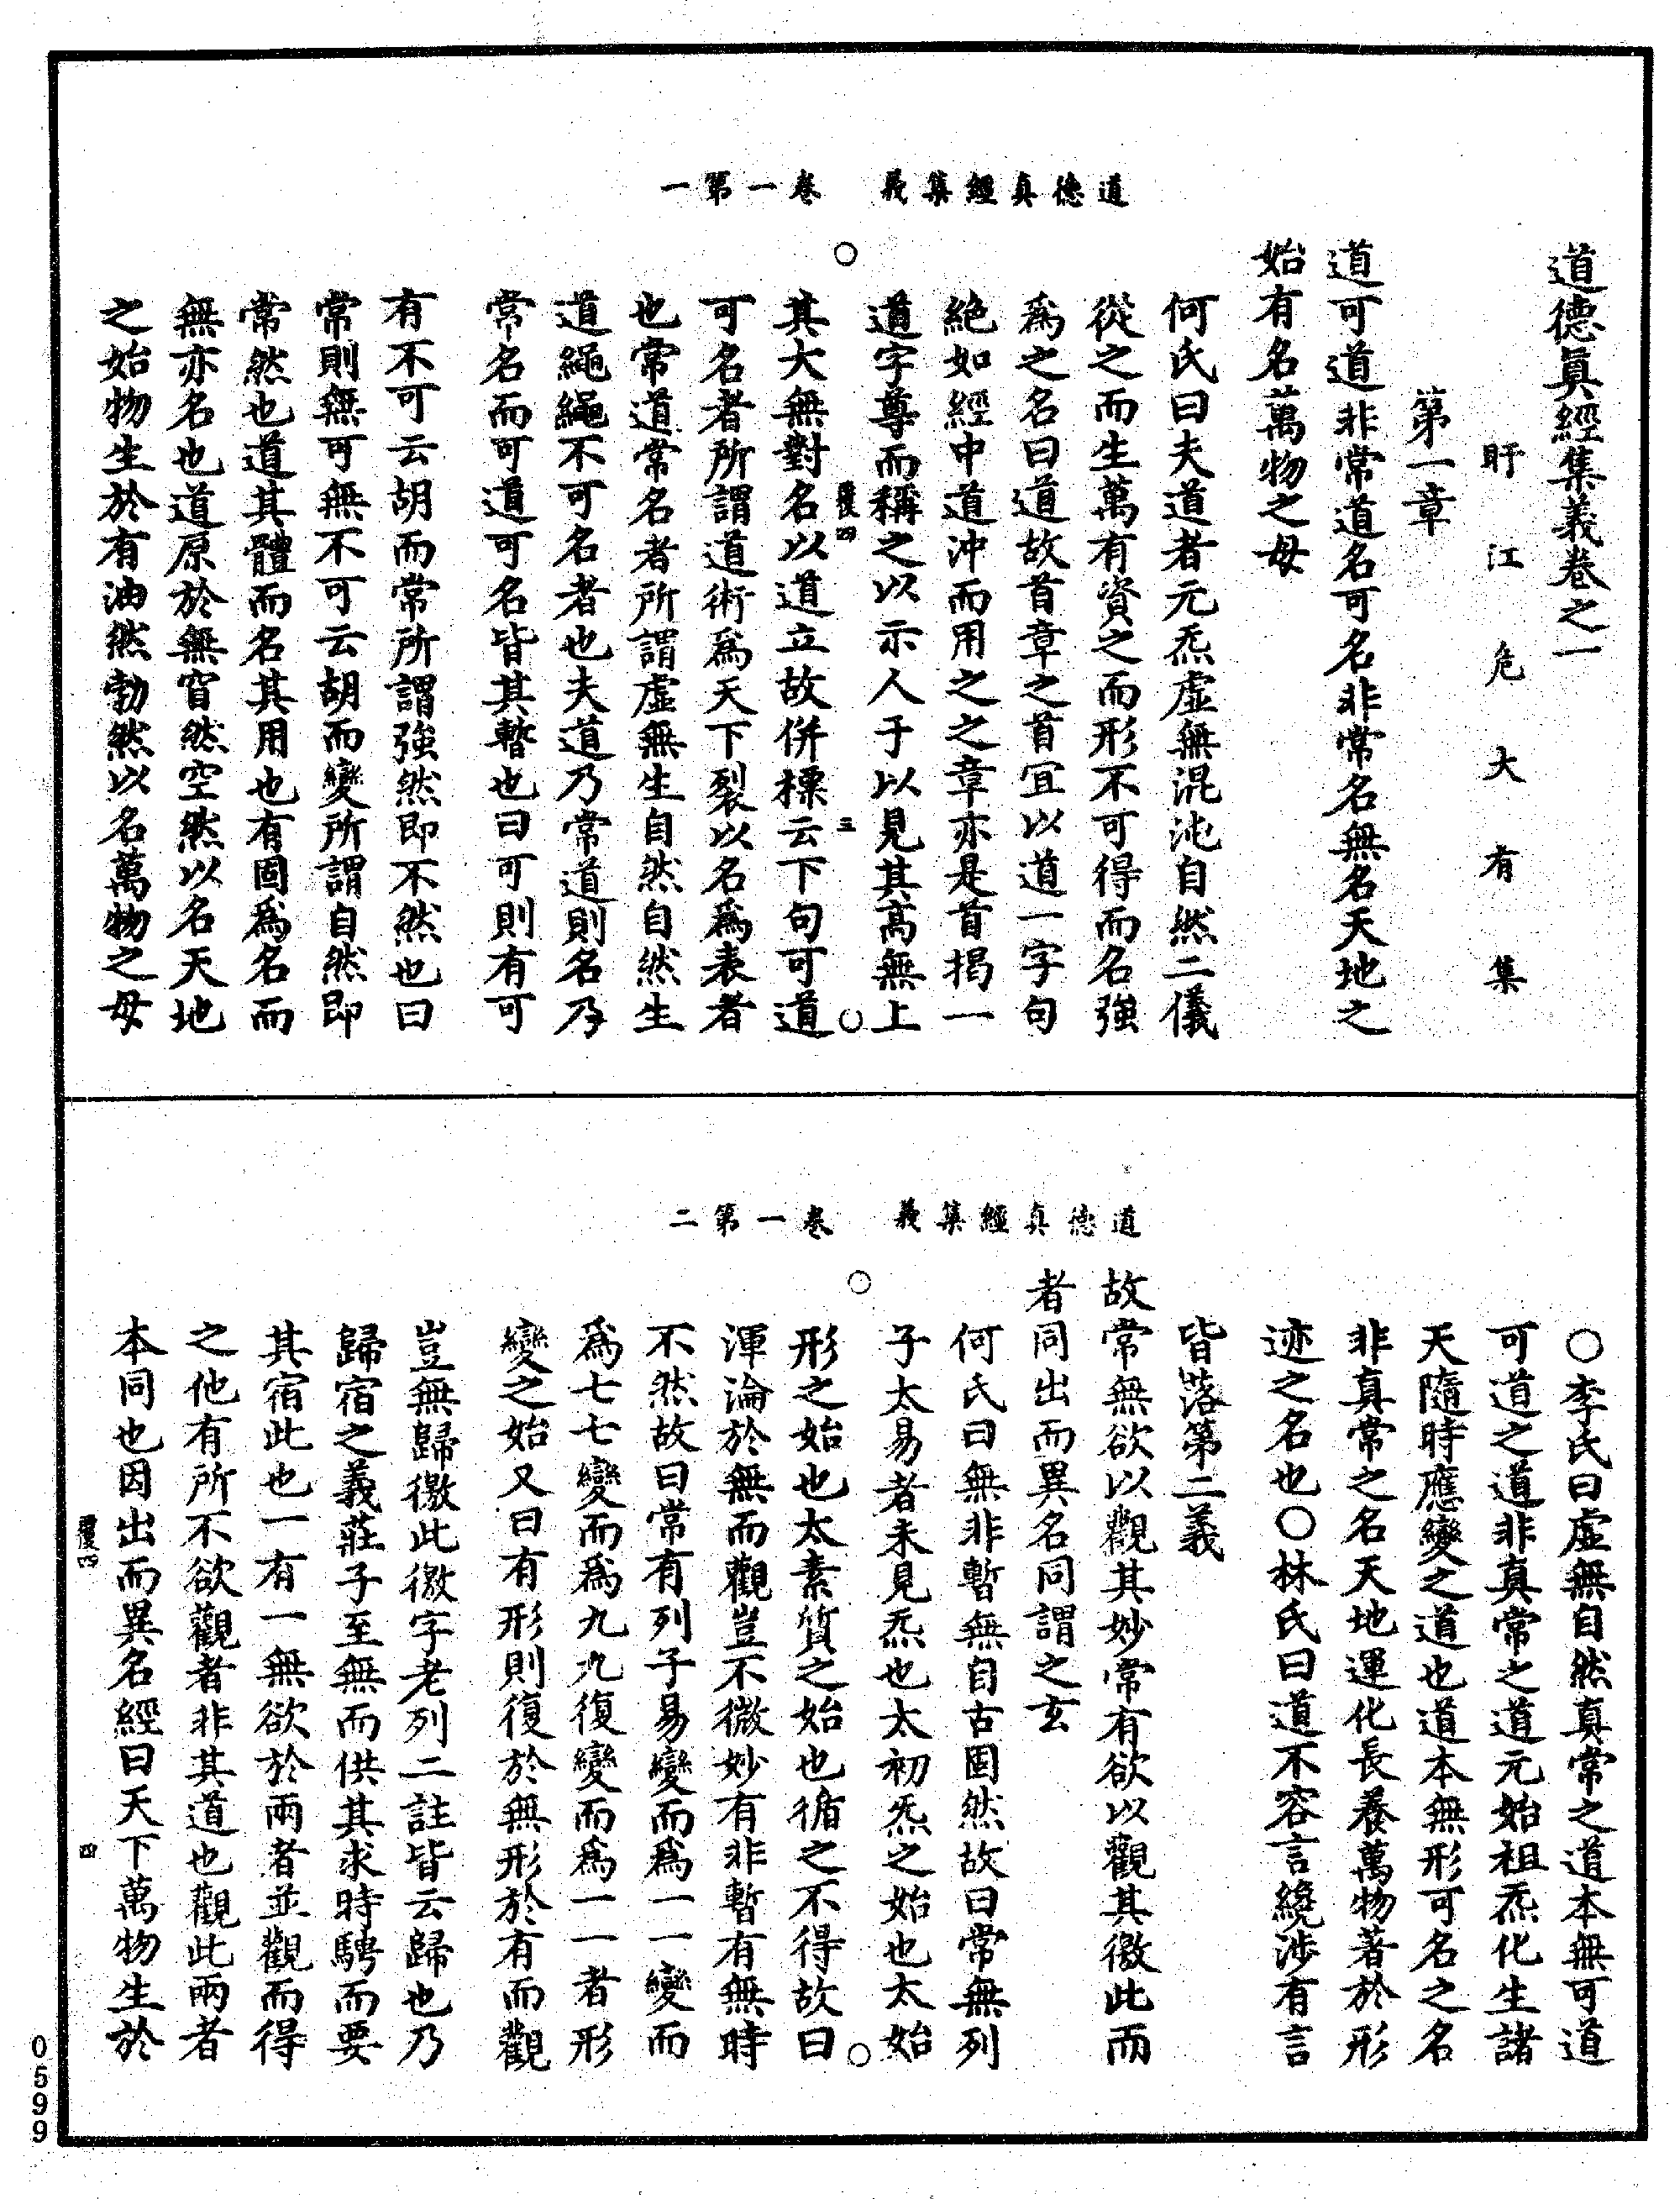 道德真經集義　卷一第一
道德眞經集義卷之一
盱江危大有集
第一章
道可道非常道名可名非常名無名天地之
始有名萬物之母
何氏曰夫道者元炁虛無混沌自然二儀
從之而生萬有資之而形不可得而名強
爲之名曰道故首章之首冝以道一字句
絶如經中道沖而用之之章亦是首揭一
道字尊而稱之以示人于以見其高無上
覆四　三
其大無對名以道立故併標云下句可道
可名者所謂道術爲天下裂以名爲表者
也常道常名者所謂虛無生自然自然生
道繩繩不可名者也夫道乃常道則名乃
常名而可道可名皆其暫也曰可則有可
有不可云胡而常所謂強然即不然也曰
常則無可無不可云胡而變所謂自然即
常然也道其體而名其用也有固爲名而
無亦名也道原於無窅然空然以名天地
之始物生於有油然勃然以名萬物之母
道德真經集義　卷一第二
○李氏曰虛無自然真常之道本無可道
可道之道非真常之道元始祖炁化生諸
天隨時應變之道也道本無形可名之名
非真常之名天地運化長養萬物著於形
迹之名也○林氏曰道不容言纔涉有言
皆落第二義
故常無欲以觀其妙常有欲以觀其徼此而
者同出而異名同謂之玄
何氏曰無非暫無自古固然故曰常無列
子太易者未見炁也太初炁之始也太始
形之始也太素質之始也循之不得故曰
渾淪於無而觀豈不微妙有非暫有無時
不然故曰常有列子易變而爲一一變而
爲七七變而爲九九復變而爲一一者形
變之始又曰有形則復於無形於有而觀
豈無歸徼此徼字老列二註皆云歸也乃
歸宿之義莊子至無而供其求時騁而要
其宿此也一有一無欲於兩者並觀而得
之他有所不欲觀者非其道也觀此兩者
本同也因出而異名經曰天下萬物生於
覆四　四
0599